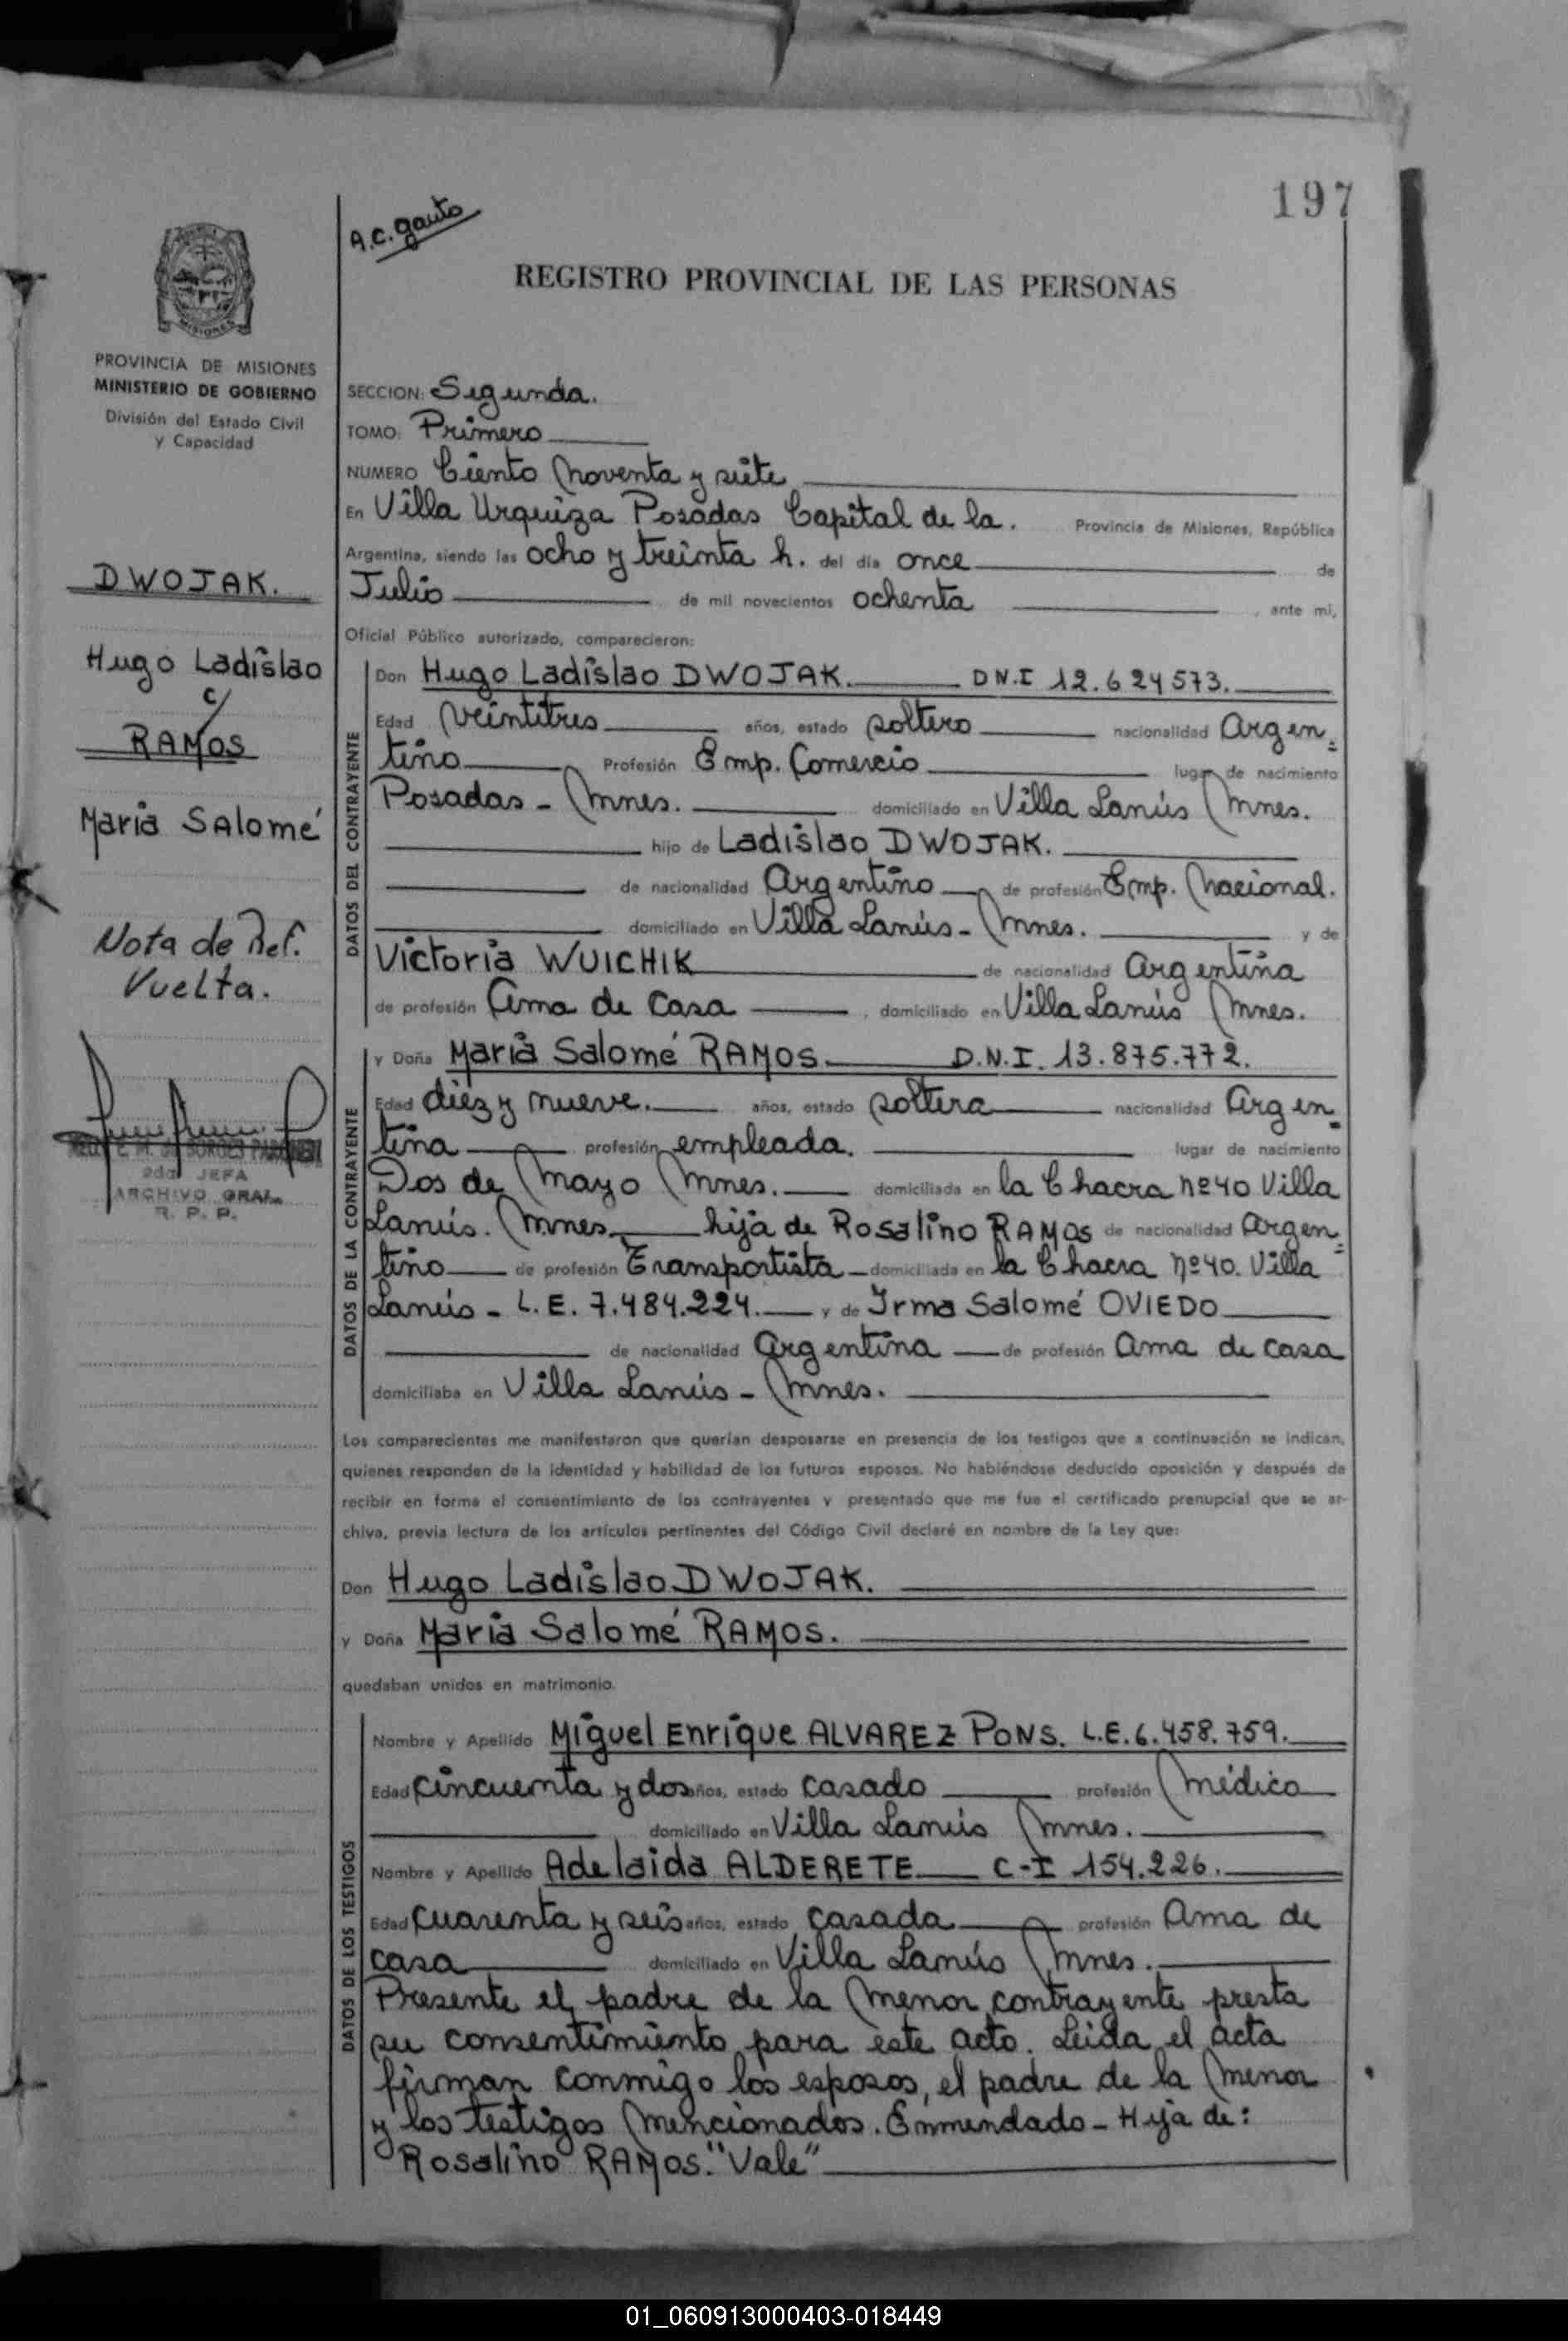 197
A.C. Gauto
REGISTRO PROVINCIAL DE LAS PERSONAS
MISIONES
PROVINCIA DE MISIONES
MINISTERIO DE GOBIERNO
División del Estado Civil
y Capacidad
DWOJAK.
Hugo Ladislao
c/
RAMOS
Maria Salomé
Nota de Ref.
Vuelta.
2da JEFA
ARCHIVO GRAL.
R. P. P.
SECCION: Segunda.
TOMO: Primero
NUMERO Ciento Noventa y siete
En Villa Urquiza Posadas Capital de la. Provincia de Misiones, República
Argentina, siendo las ocho y treinta h. del día once de
Julio de mil novecientos ochenta, ante mí,
Oficial Público autorizado, comparecieron:
DATOS DEL CONTRAYENTE
Don Hugo Ladislao DWOJAK. DN.I 12.624573.
Edad Veintitres años, estado soltero nacionalidad Argen=
tino Profesión Emp. Comercio lugar de nacimiento
Posadas - Mnes. domiciliado en Villa Lanús Mnes.
hijo de Ladislao DWOJAK.
de nacionalidad Argentino de profesión Emp. Nacional.
domiciliado en Villa Lanús - Mnes. y de
Victoria WUICHIK de nacionalidad Argentina
de profesión Ama de Casa, domiciliado en Villa Lanús Mnes.
DATOS DE LA CONTRAYENTE
y Doña Maria Salomé RAMOS. D.N.I. 13.875.772.
Edad diez y nueve. años, estado soltera nacionalidad Argen=
tina profesión empleada. lugar de nacimiento
Dos de Mayo Mnes. domiciliada en la Chacra nº 40 Villa
Lanús. Mnes hija de Rosalino RAMOS de nacionalidad Argen=
tino de profesión Transportista domiciliada en la Chacra nº 40. Villa
Lanús - L.E. 7.484.224. y de Irma Salomé OVIEDO
de nacionalidad Argentina de profesión Ama de casa
domiciliaba en Villa Lanús - Mnes.
Los comparecientes me manifestaron que querían desposarse en presencia de los testigos que a continuación se indican,
quienes responden de la identidad y habilidad de los futuros esposos. No habiéndose deducido oposición y después de
recibir en forma el consentimiento de los contrayentes y presentado que me fue el certificado prenupcial que se ar-
chiva, previa lectura de los artículos pertinentes del Código Civil declaré en nombre de la Ley que:
Don Hugo Ladislao DWOJAK.
y Doña Maria Salomé RAMOS.
quedaban unidos en matrimonio.
DATOS DE LOS TESTIGOS
Nombre y Apellido Miguel Enrique ALVAREZ PONS. L.E. 6.458.759.
Edad cincuenta y dos años, estado casado profesión Médico
domiciliado en Villa Lanús Mnes.
Nombre y Apellido Adelaida ALDERETE C-I 154.226.
Edad cuarenta y seis años, estado casada profesión Ama de
casa domiciliado en Villa Lanús Mnes.
Presente el padre de la Menor contrayente presta
su consentimiento para este acto. Leida el acta
firman conmigo los esposos, el padre de la Menor
y los testigos Mencionados. Enmendado - Hija de:
Rosalino RAMOS. "Vale"
01_060913000403-018449